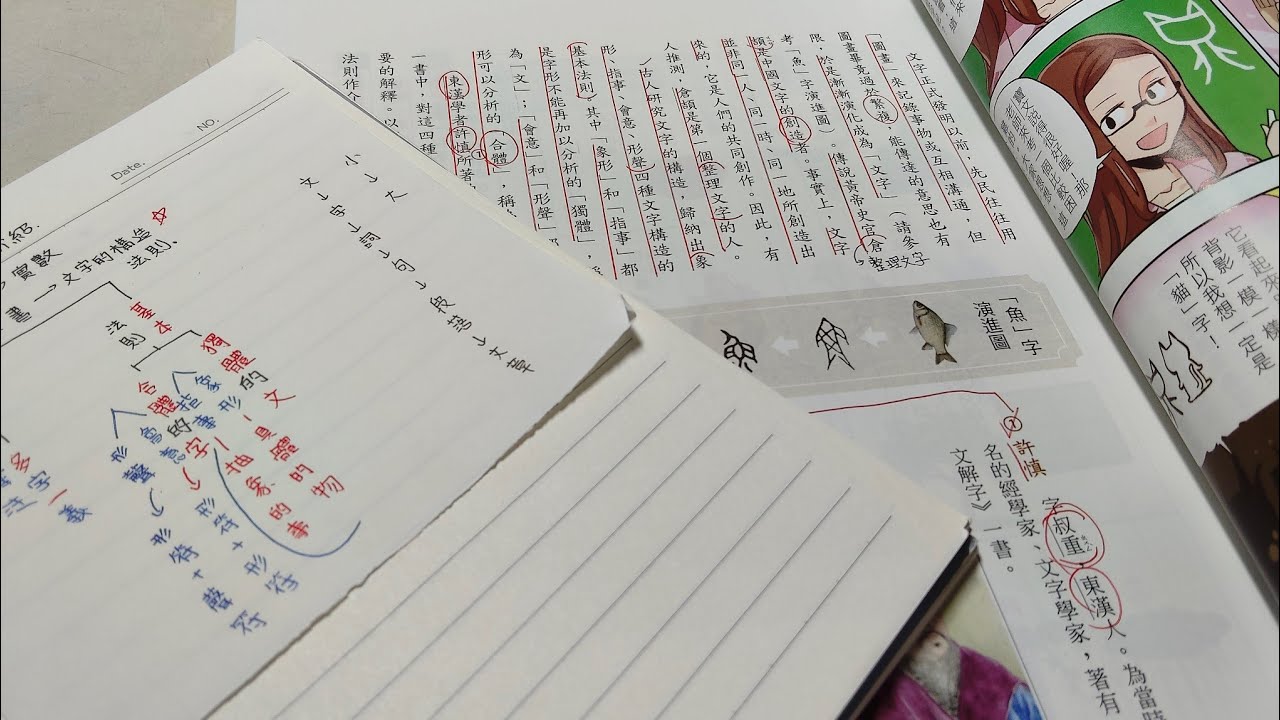 文字正式發明以前，先民往往用
「圖畫」來記錄事物或互相溝通，但
圖畫畢竟過於繁複，能傳達的意思也有
限，於是漸漸演化成為「文字」（請參
考「魚」字演進圖）。傳說黃帝史官倉
整理文字
頡是中國文字的創造者。事實上，文字
並非同一人、同一時、同一地所創造出
來的，它是人們的共同創作。因此，有
人推測，倉頡是第一個整理文字的人。
古人研究文字的構造，歸納出象
形、指事、會意、形聲四種文字構造的
基本法則，其中「象形」和「指事」都
是字形不能再加以分析的「獨體」，
為「文」；「會意」和「形聲」
形可以分析的「合體」，稱
東漢學者許慎所著
一書中，對這四種
要的解釋。以
法則作介
「魚」字
演進圖
許慎
字叔重，東漢人。為當時
名的經學家、文字學家，著有
文解字》一書。
它看起來
背影一模一樣
所以我想一定是
「貓」字！
NO.
Date.
小→大
文→字→詞→句→段落→文章
實數
書→文字的構造
法則、
基本
法則
獨體的文
象形－具體的物
指事－抽象的事
合體的字
會意→形符+形符
形聲→形符+聲符
多字一義